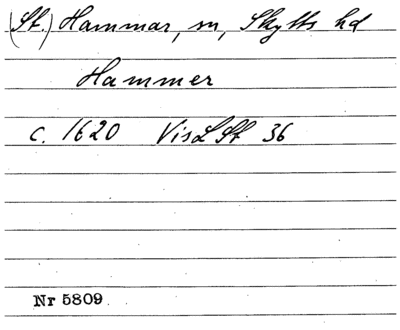 (St.) Hammar, m, Skytts hd
Hammer
c. 1620 VisLSt 36
Nr 5809